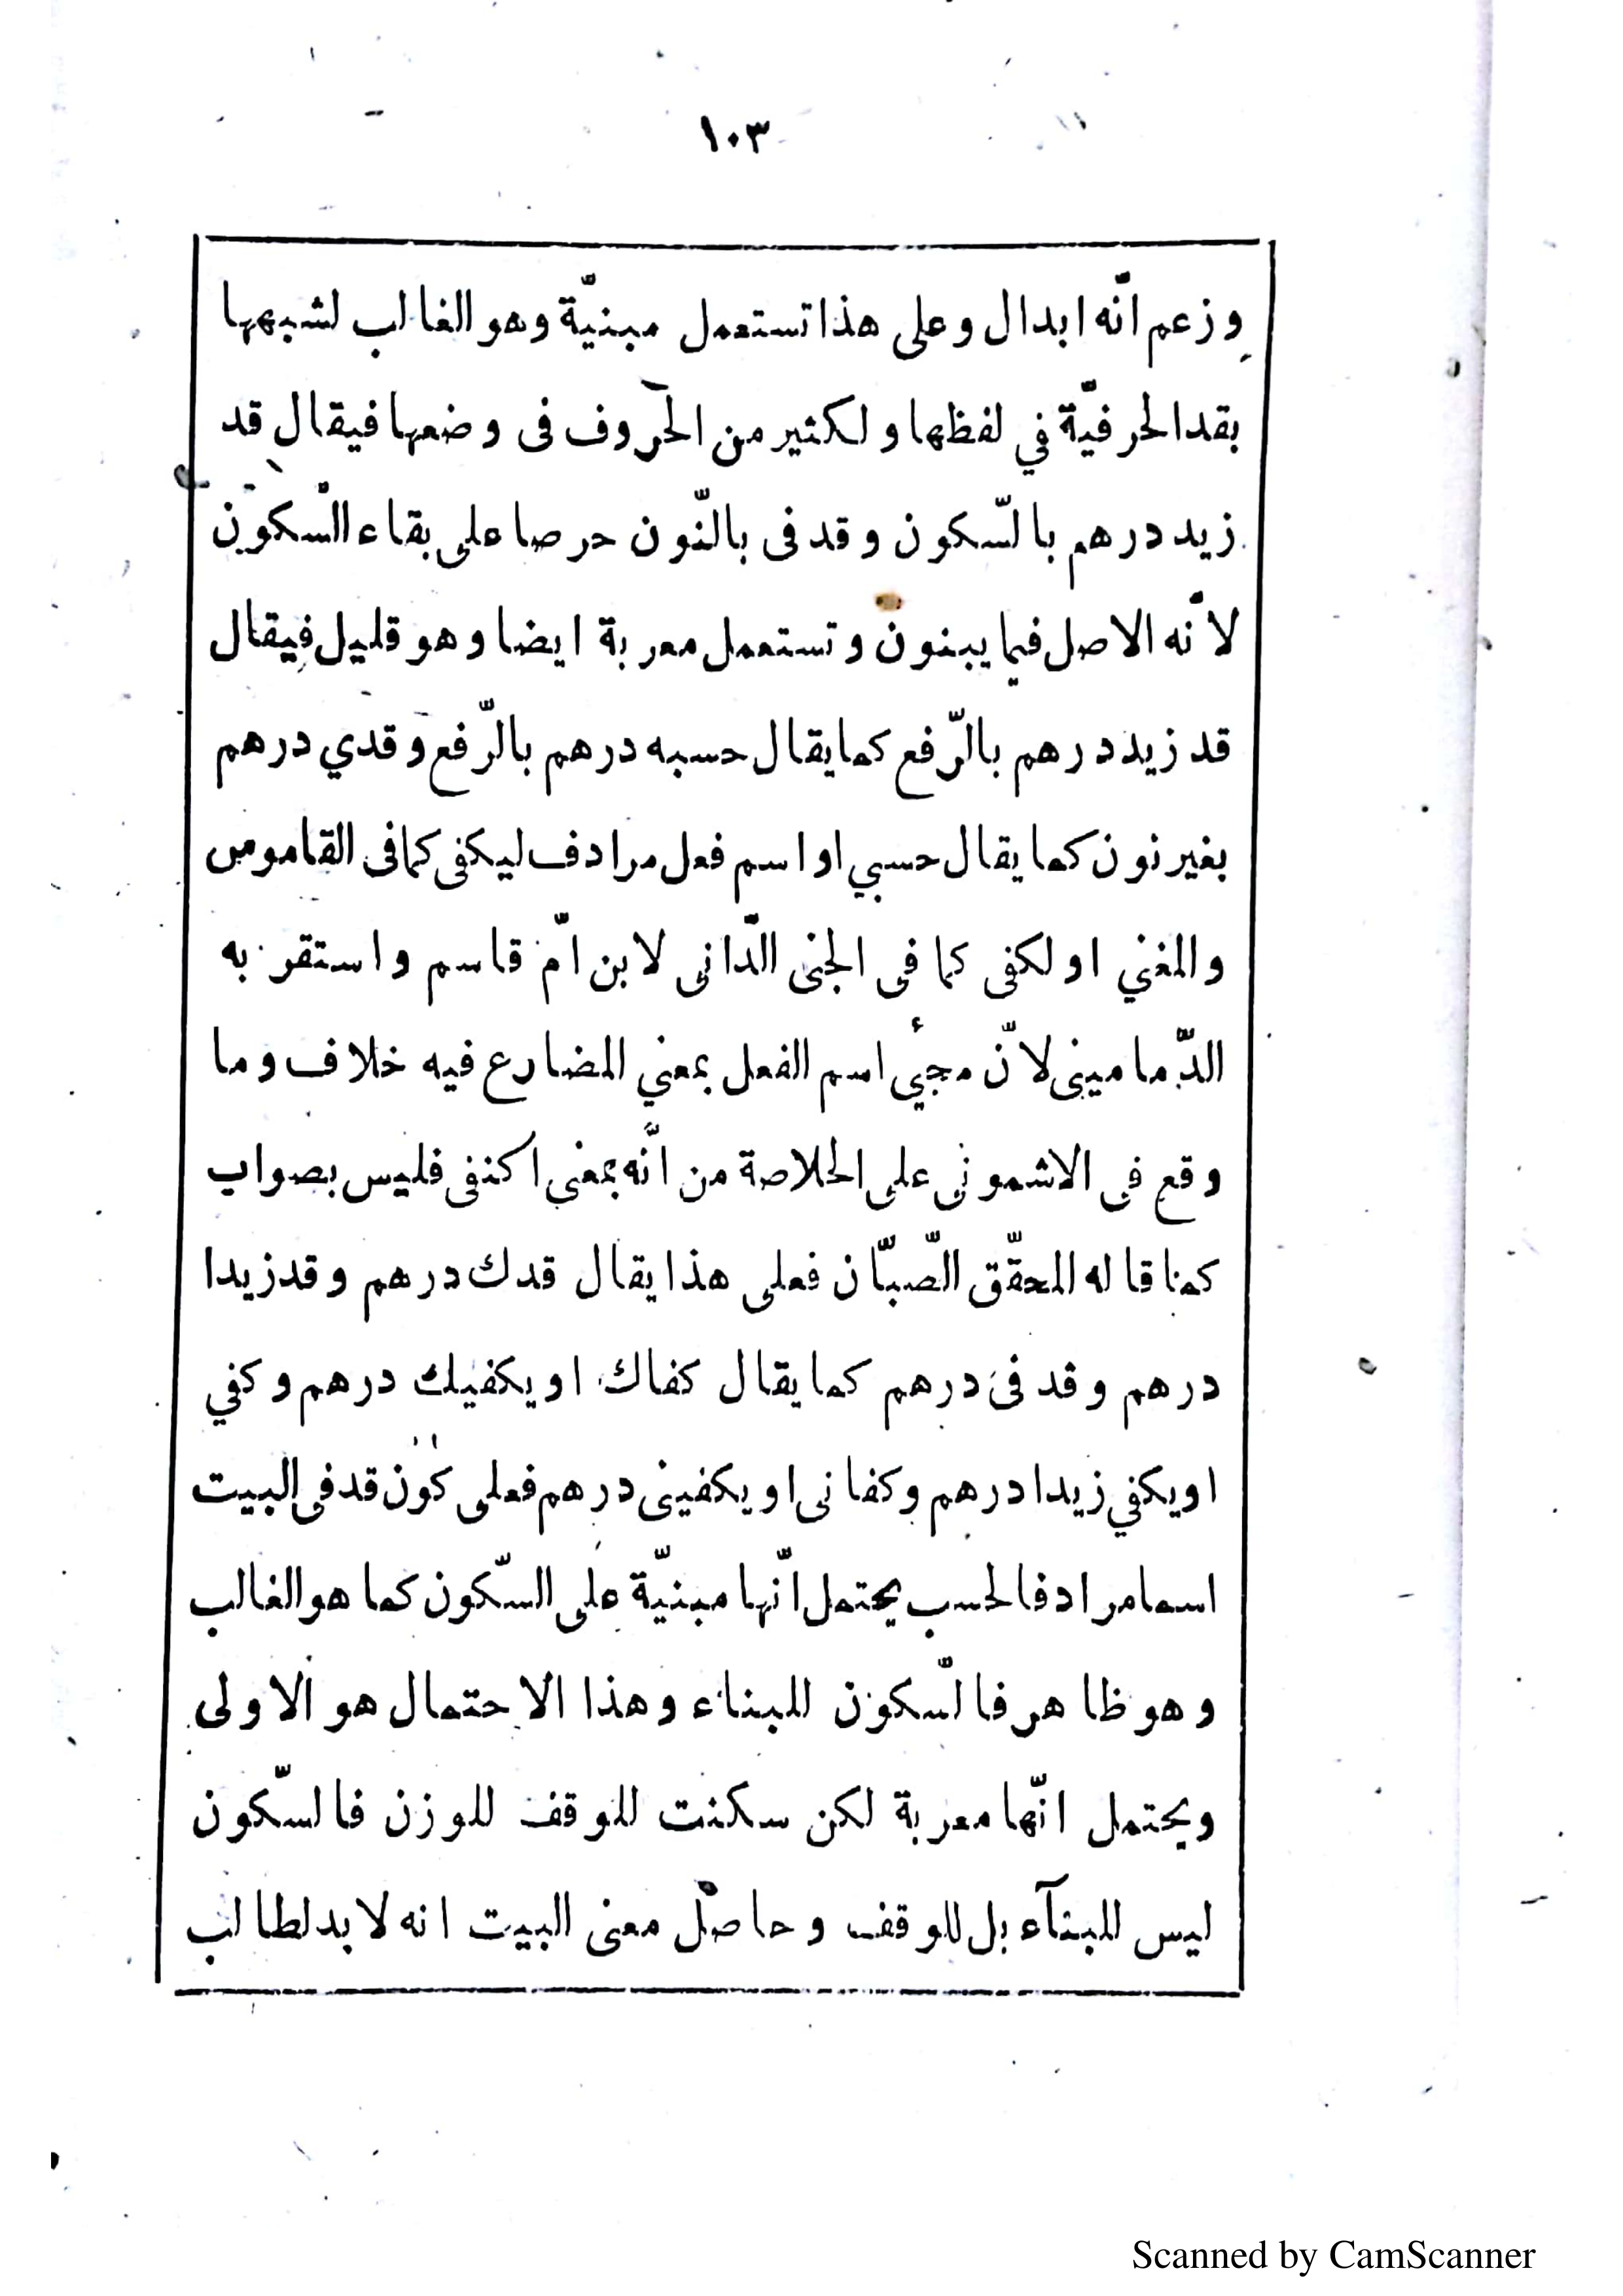 ١٠٣
وزعم انّه ابدال وعلى هذا تستعمل مبنيّة وهو الغالب لشبهها
بقد الحرفيّة في لفظها ولكثير من الحروف فى وضعها فيقال قد
زيد درهم بالسّكون وقدنى بالنّون حرصا على بقاء السّكون
لانّه الاصل فيما يبنون وتستعمل معربة ايضا وهو قليل فيقال
قد زيد درهم بالرّفع كما يقال حسبه درهم بالرّفع وقدي درهم
بغير نون كما يقال حسبي او اسم فعل مرادف ليكفى كما فى القاموس
والمغني او لكفى كما فى الجنى الدّانى لابن امّ قاسم واستقر به
الدّمامينى لانّ مجئ اسم الفعل بمعني المضارع فيه خلاف وما
وقع فى الاشمونى على الخلاصة من انّه بمعنى اكتفى فليس بصواب
كما قاله المحقّق الصّبّان فعلى هذا يقال قدك درهم وقد زيدا
درهم وقدنى درهم كما يقال كفاك او يكفيك درهم وكفي
او يكفي زيدا درهم وكفانى او يكفينى درهم فعلى كون قد فى البيت
اسما مرادفا لحسب يحتمل انّها مبنيّة على السّكون كما هو الغالب
وهو ظاهر فالسّكون للبناء وهذا الاحتمال هو الاولى
ويحتمل انّها معربة لكن سكنت للوقف للوزن فالسّكون
ليس للبنآء بل للوقف وحاصل معنى البيت انه لا بد لطالب
Scanned by CamScanner